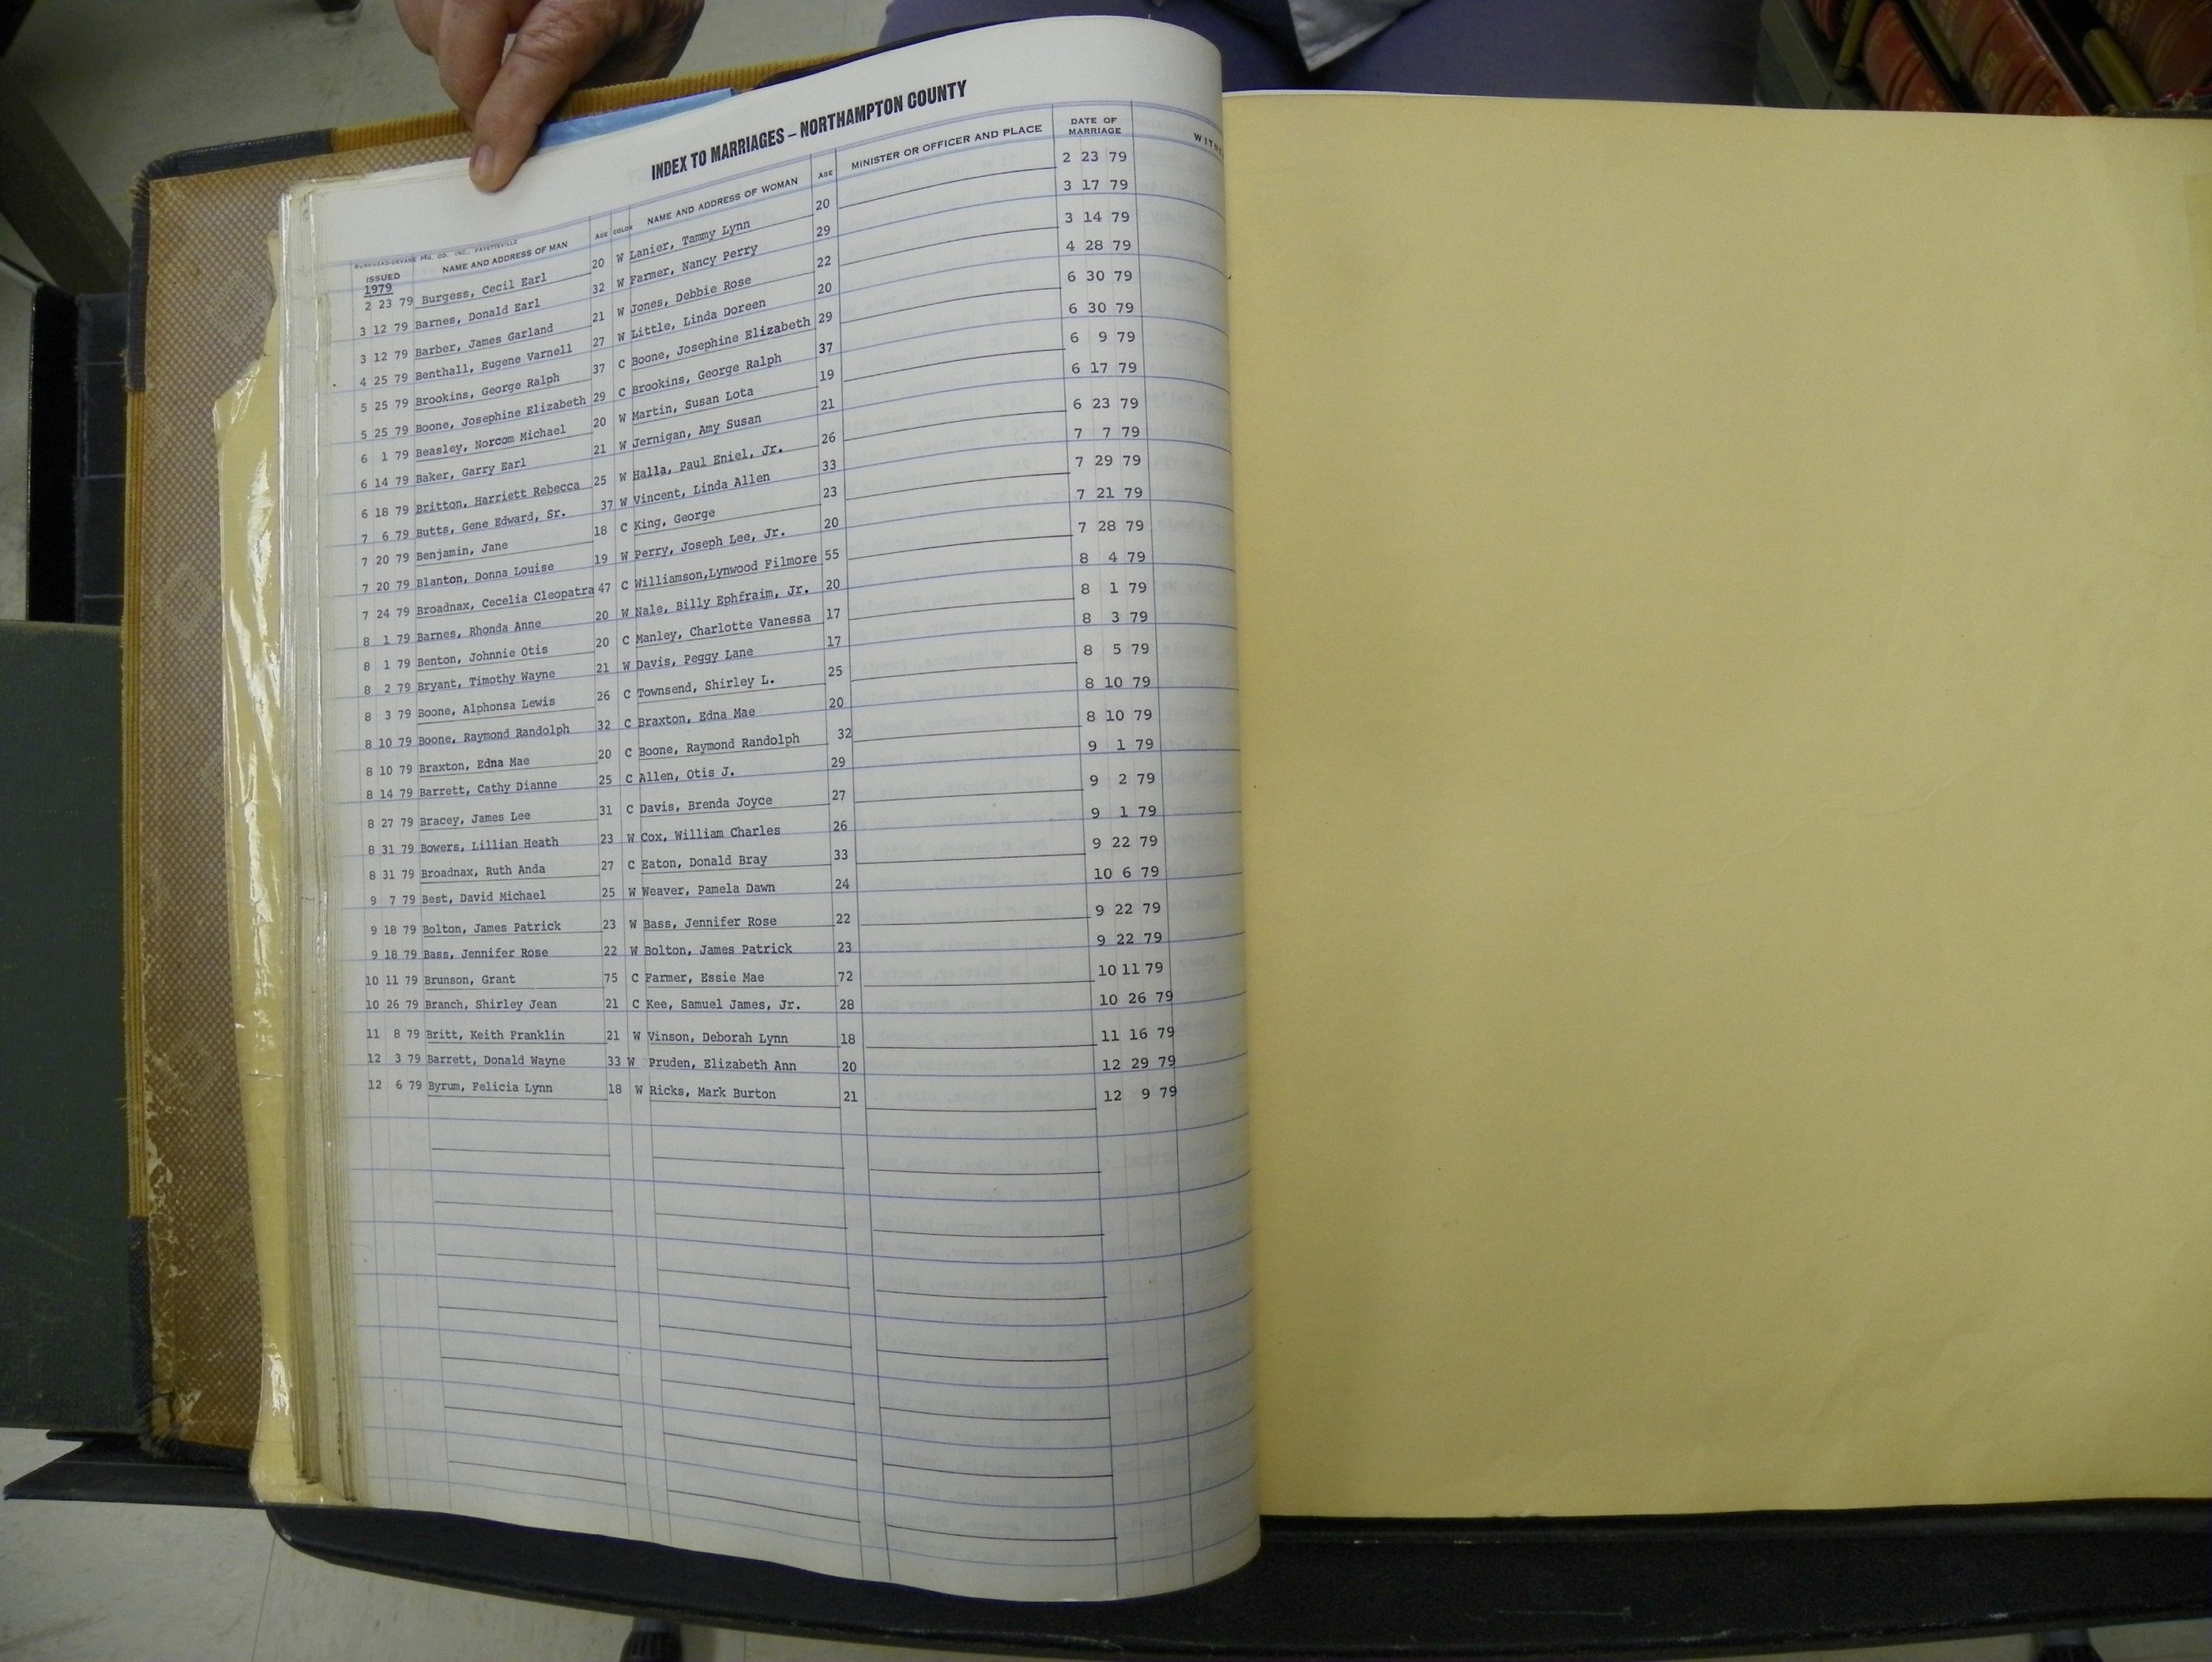 INDEX TO MARRIAGES – NORTHAMPTON COUNTY
BURKHEAD-DEVANE P'G. CO., INC., FAYETTEVILLE
ISSUED NAME AND ADDRESS OF MAN AGE COLOR NAME AND ADDRESS OF WOMAN AGE MINISTER OR OFFICER AND PLACE DATE OF MARRIAGE
1979
2 23 79 Burgess, Cecil Earl 20 W Lanier, Tammy Lynn 20 2 23 79
3 12 79 Barnes, Donald Earl 32 W Farmer, Nancy Perry 29 3 17 79
3 12 79 Barber, James Garland 21 W Jones, Debbie Rose 22 3 14 79
4 25 79 Benthall, Eugene Varnell 27 W Little, Linda Doreen 20 4 28 79
5 25 79 Brookins, George Ralph 37 C Boone, Josephine Elizabeth 29 6 30 79
5 25 79 Boone, Josephine Elizabeth 29 C Brookins, George Ralph 37 6 30 79
6 1 79 Beasley, Norcom Michael 20 W Martin, Susan Lota 19 6 9 79
6 14 79 Baker, Garry Earl 21 W Jernigan, Amy Susan 21 6 17 79
6 18 79 Britton, Harriett Rebecca 25 W Halla, Paul Eniel, Jr. 26 6 23 79
7 6 79 Butts, Gene Edward, Sr. 37 W Vincent, Linda Allen 33 7 7 79
7 20 79 Benjamin, Jane 18 C King, George 23 7 29 79
7 20 79 Blanton, Donna Louise 19 W Perry, Joseph Lee, Jr. 20 7 21 79
7 24 79 Broadnax, Cecelia Cleopatra 47 C Williamson,Lynwood Filmore 55 7 28 79
8 1 79 Barnes, Rhonda Anne 20 W Nale, Billy Ephfraim, Jr. 20 8 4 79
8 1 79 Benton, Johnnie Otis 20 C Manley, Charlotte Vanessa 17 8 1 79
8 2 79 Bryant, Timothy Wayne 21 W Davis, Peggy Lane 17 8 3 79
8 3 79 Boone, Alphonsa Lewis 26 C Townsend, Shirley L. 25 8 5 79
8 10 79 Boone, Raymond Randolph 32 C Braxton, Edna Mae 20 8 10 79
8 10 79 Braxton, Edna Mae 20 C Boone, Raymond Randolph 32 8 10 79
8 14 79 Barrett, Cathy Dianne 25 C Allen, Otis J. 29 9 1 79
8 27 79 Bracey, James Lee 31 C Davis, Brenda Joyce 27 9 2 79
8 31 79 Bowers, Lillian Heath 23 W Cox, William Charles 26 9 1 79
8 31 79 Broadnax, Ruth Anda 27 C Eaton, Donald Bray 33 9 22 79
9 7 79 Best, David Michael 25 W Weaver, Pamela Dawn 24 10 6 79
9 18 79 Bolton, James Patrick 23 W Bass, Jennifer Rose 22 9 22 79
9 18 79 Bass, Jennifer Rose 22 W Bolton, James Patrick 23 9 22 79
10 11 79 Brunson, Grant 75 C Farmer, Essie Mae 72 10 11 79
10 26 79 Branch, Shirley Jean 21 C Kee, Samuel James, Jr. 28 10 26 79
11 8 79 Britt, Keith Franklin 21 W Vinson, Deborah Lynn 18 11 16 79
12 3 79 Barrett, Donald Wayne 33 W Pruden, Elizabeth Ann 20 12 29 79
12 6 79 Byrum, Felicia Lynn 18 W Ricks, Mark Burton 21 12 9 79